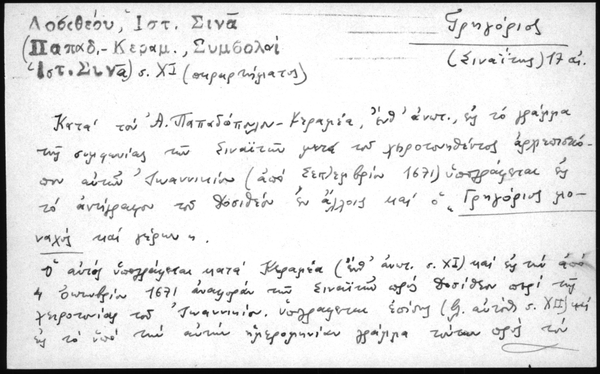 Δοσιθέου, Ἱστ. Σινᾶ
(Παπαδ.-Κεραμ., Συμβολαί
Ἱστ. Σινᾶ) σ. XI (παραρτήματος)
Γρηγόριος
(Σιναΐτης) 17 αἰ.
Κατὰ τὸν Ἀ. Παπαδόπουλον-Κεραμέα, ἔνθ' ἀνωτ., εἰς τὸ γράμμα
τῆς συμφωνίας τῶν Σιναϊτῶν μετὰ τοῦ χειροτονηθέντος ἀρχιεπισκό-
που αὐτῶν Ἰωαννικίου (ἀπὸ Σεπ]εμβρίου 1671) ὑπογράφεται εἰς
τὸ ἀντίγραφον τοῦ Δοσιθέου ἐν ἄλλοις καὶ ὁ "Γρηγόριος μο-
ναχὸς καὶ γέρων".
Ὁ αὐτὸς ὑπογράφεται κατὰ Κεραμέα (ἔνθ' ἀνωτ. σ. XI) καὶ εἰς τὴν ἀπὸ
4 Ὀκτωβρίου 1671 ἀναφορὰν τῶν Σιναϊτῶν πρὸς Δοσίθεον περὶ τῆς
χειροτονίας τοῦ Ἰωαννικίου. ὑπογράφεται ἐπίσης (βλ. αὐτόθι σ. XII) καὶ
εἰς τὸ ὑπὸ τὴν αὐτὴν ἡμερομηνίαν γράμμα τούτων πρὸς τὸν